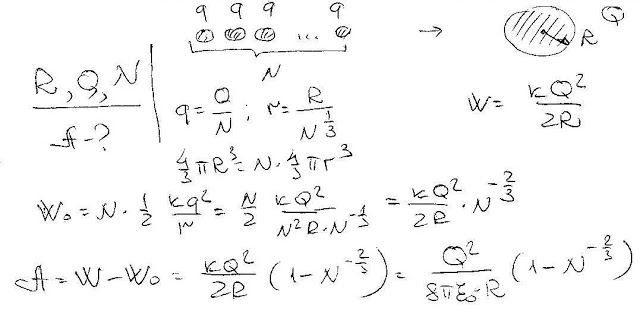 q q q ... q → Q
N R
R, Q, N
A - ?
q = Q/N ; r = R/N^{1/3} W = kQ²/2R
4/3 πR³ = N · 4/3 πr³
W₀ = N · 1/2 kq²/r = N/2 kQ²/(N² R · N^{-1/3}) = kQ²/2R · N^{-2/3}
A = W - W₀ = kQ²/2R (1 - N^{-2/3}) = Q²/(8πε₀ · R) (1 - N^{-2/3})